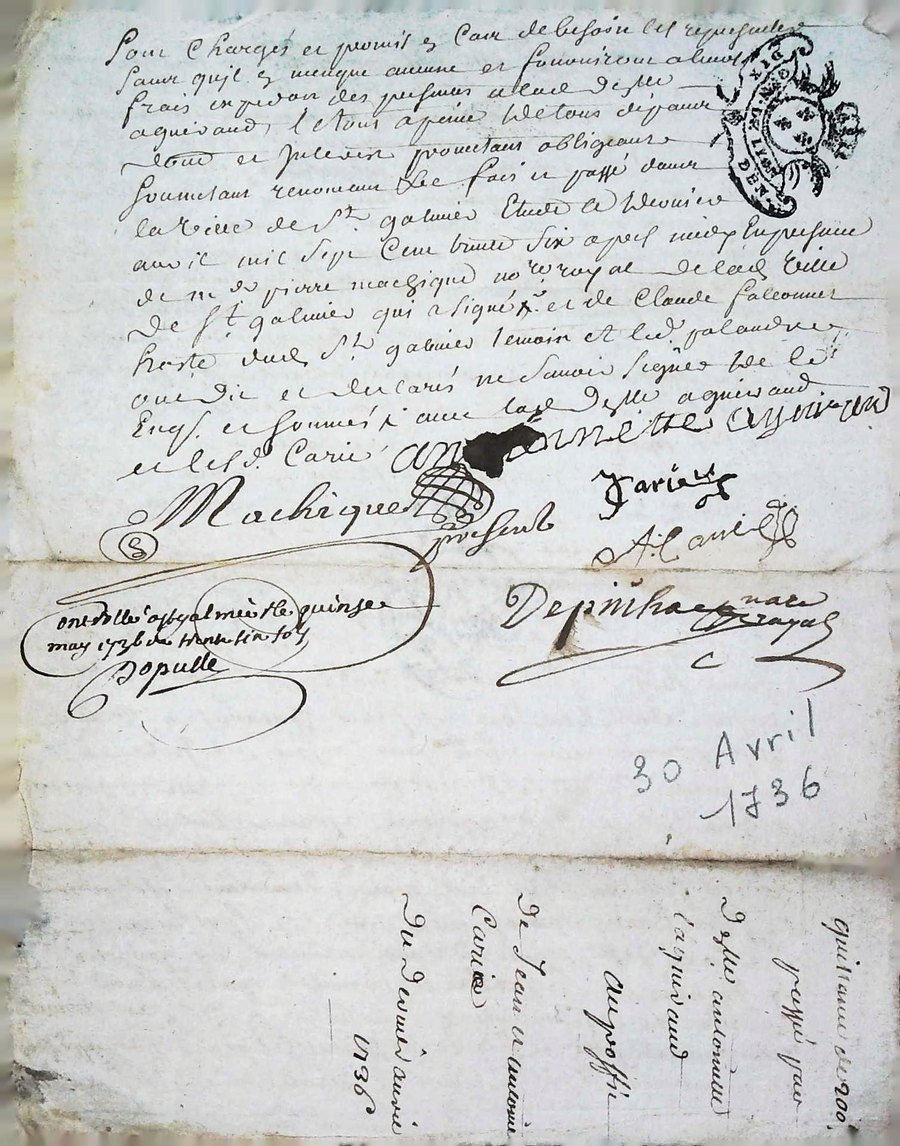 Pour Charges et promis en Cas de besoin les representer
sans qu'il en manque aucune et fourniront a leurs
frais expedon des presentes a lad delle
aguiraud, le tous a peine de tous depans
dom et Interest promettans obligeans
Soumettans renoncans &c fais et passé dans
la ville de St galmier Etude ce dernier
avril mil sept Cent trente six apres midy En presence
de me pierre machique nore royal de lad ville
de St galmier qui a signé et de Claude falconnet
hoste dud St galmier temoin et led
ont dit et declarés ne savoir signer de ce
Enqs et sommés avec lad delle aguiraud
et lesd. Carié
annette
Machique
present
Carié
A. Carié
Depinhac nore royal
controllé a st galmier le quinse
may 1736 Rx trente six sols
Dopulle
30 Avril
1736
quittance de 200
passé par
Delle antoinette
laguiraud
au proffit
de Jean et antoine
Carié
Du Dernier avril
1736
GEN. DE LION
DIX
DEN.